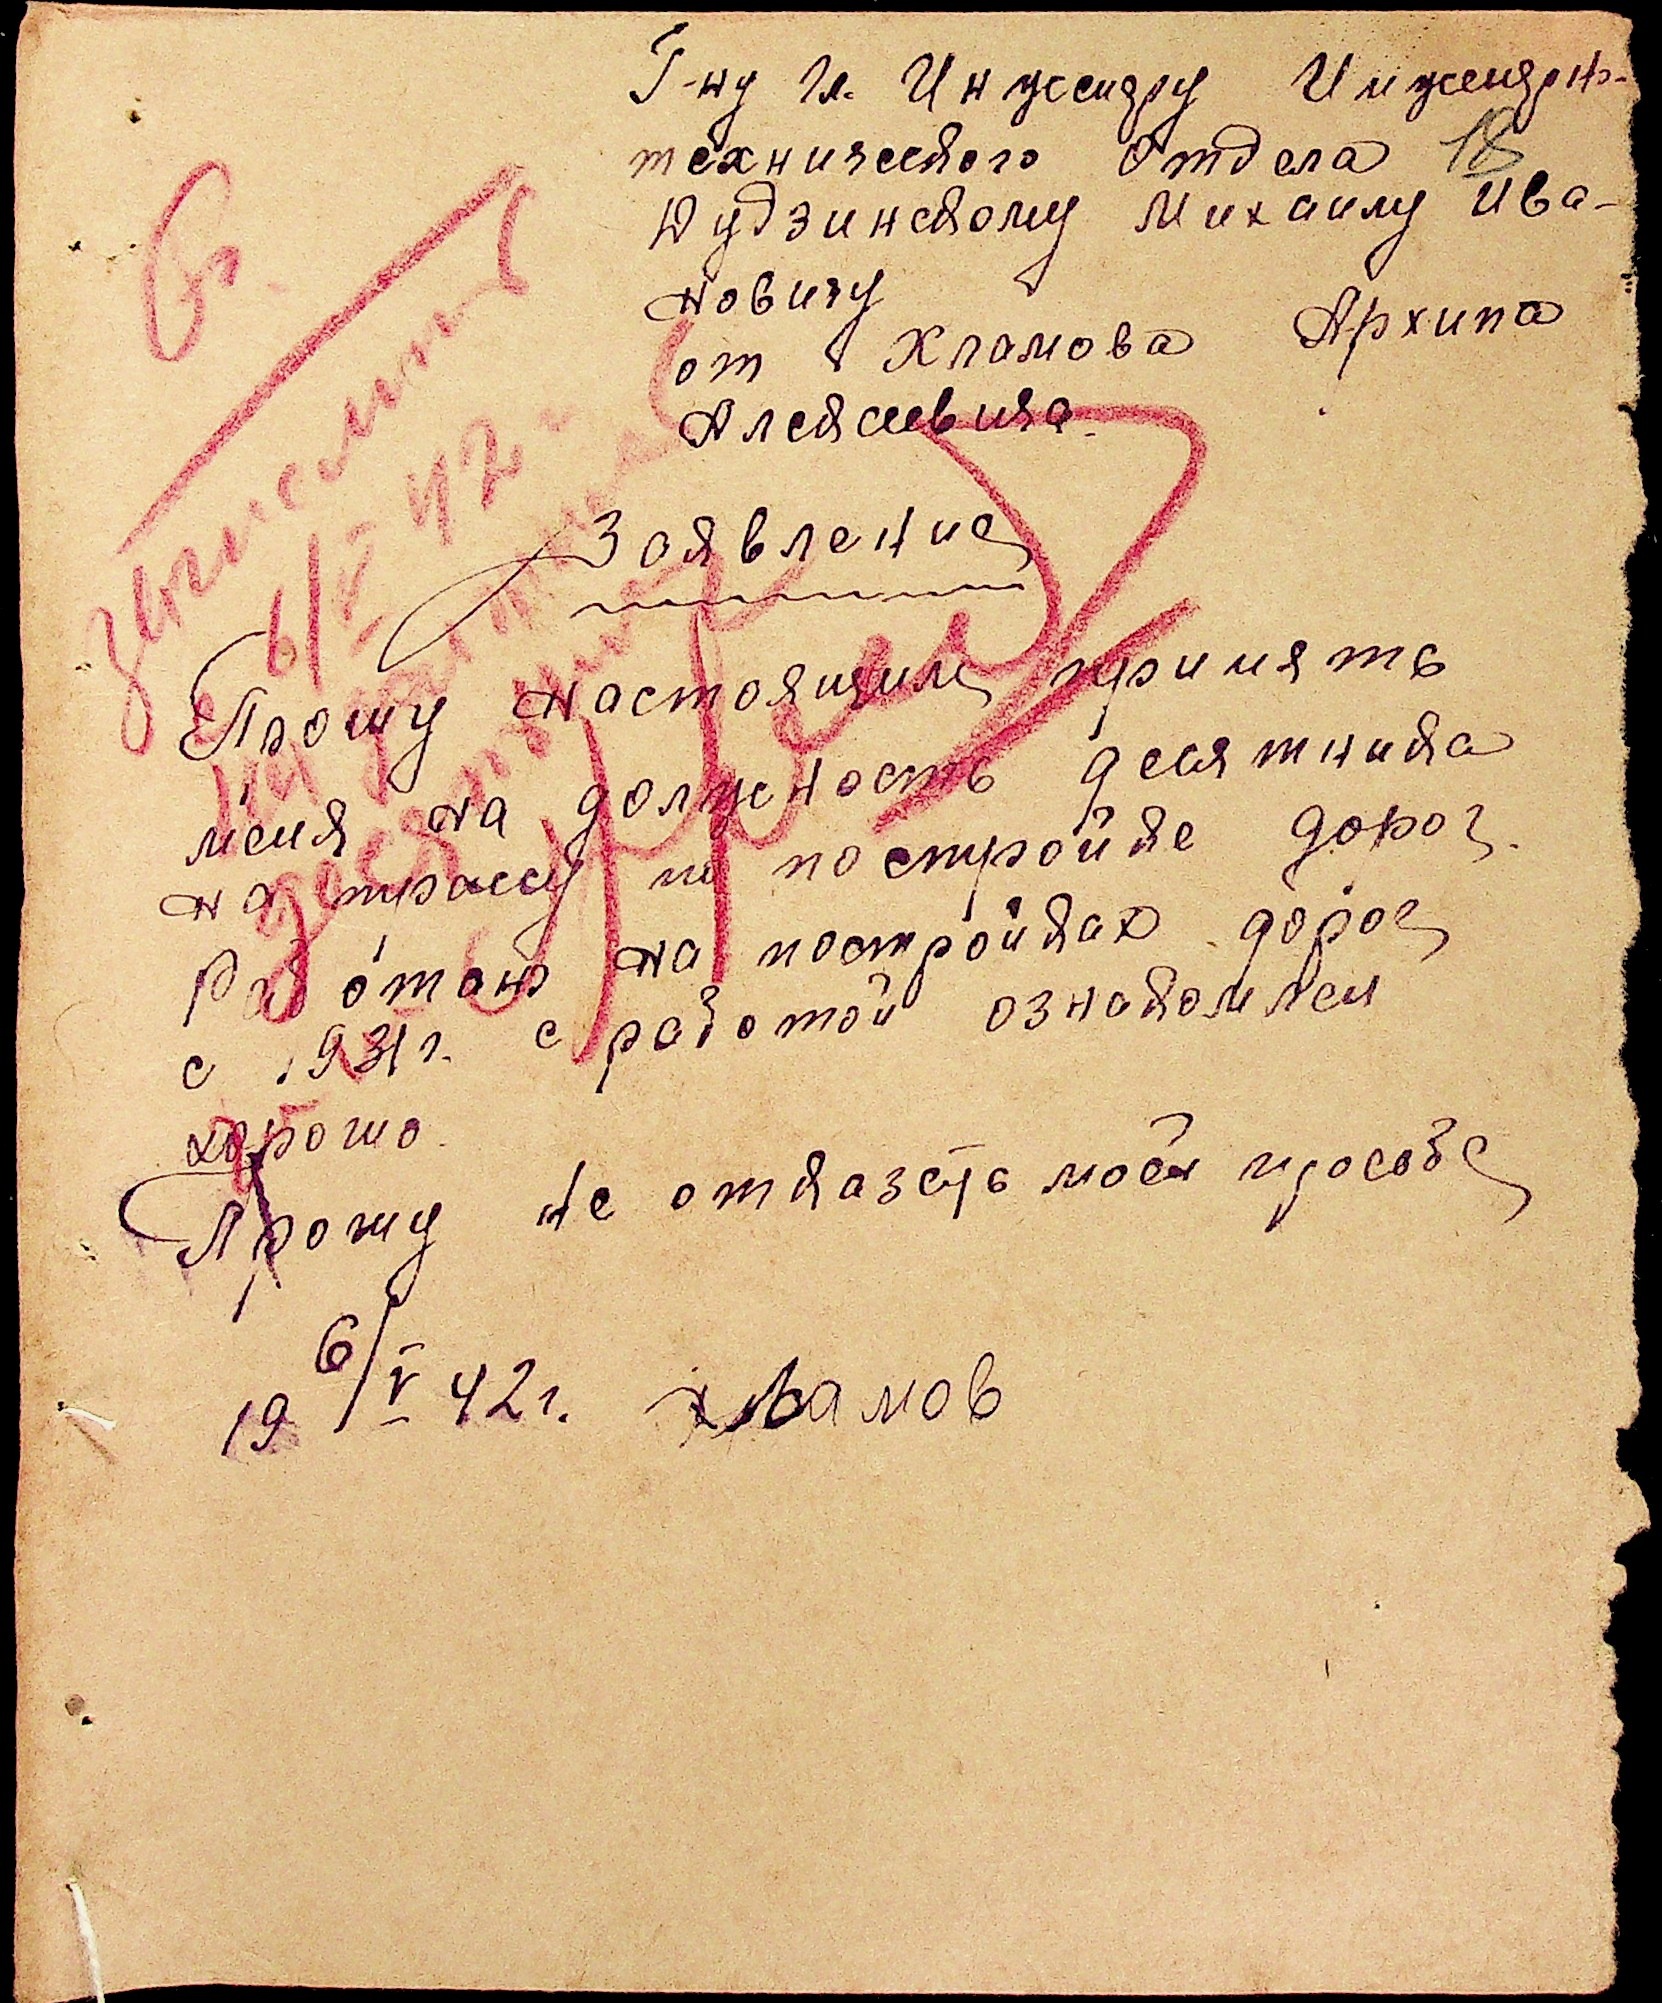 Г-ну Гл. Инженеру Инженерно-
технического Отдела 18
Дудзинскому Михаилу Ива-
новичу
от Хламова Архипа
Алексеевича.
Заявление
Прошу настоящим принять
меня на должность десятника
на трассу по постройке дорог.
Работаю на постройках дорог
с 1931 г. с работой ознакомлен
хорошо.
Прошу не отказать моей просьбе
19 6/V 42 г. Хламов
Зачислить
с 6/V 42
на должность
десятника